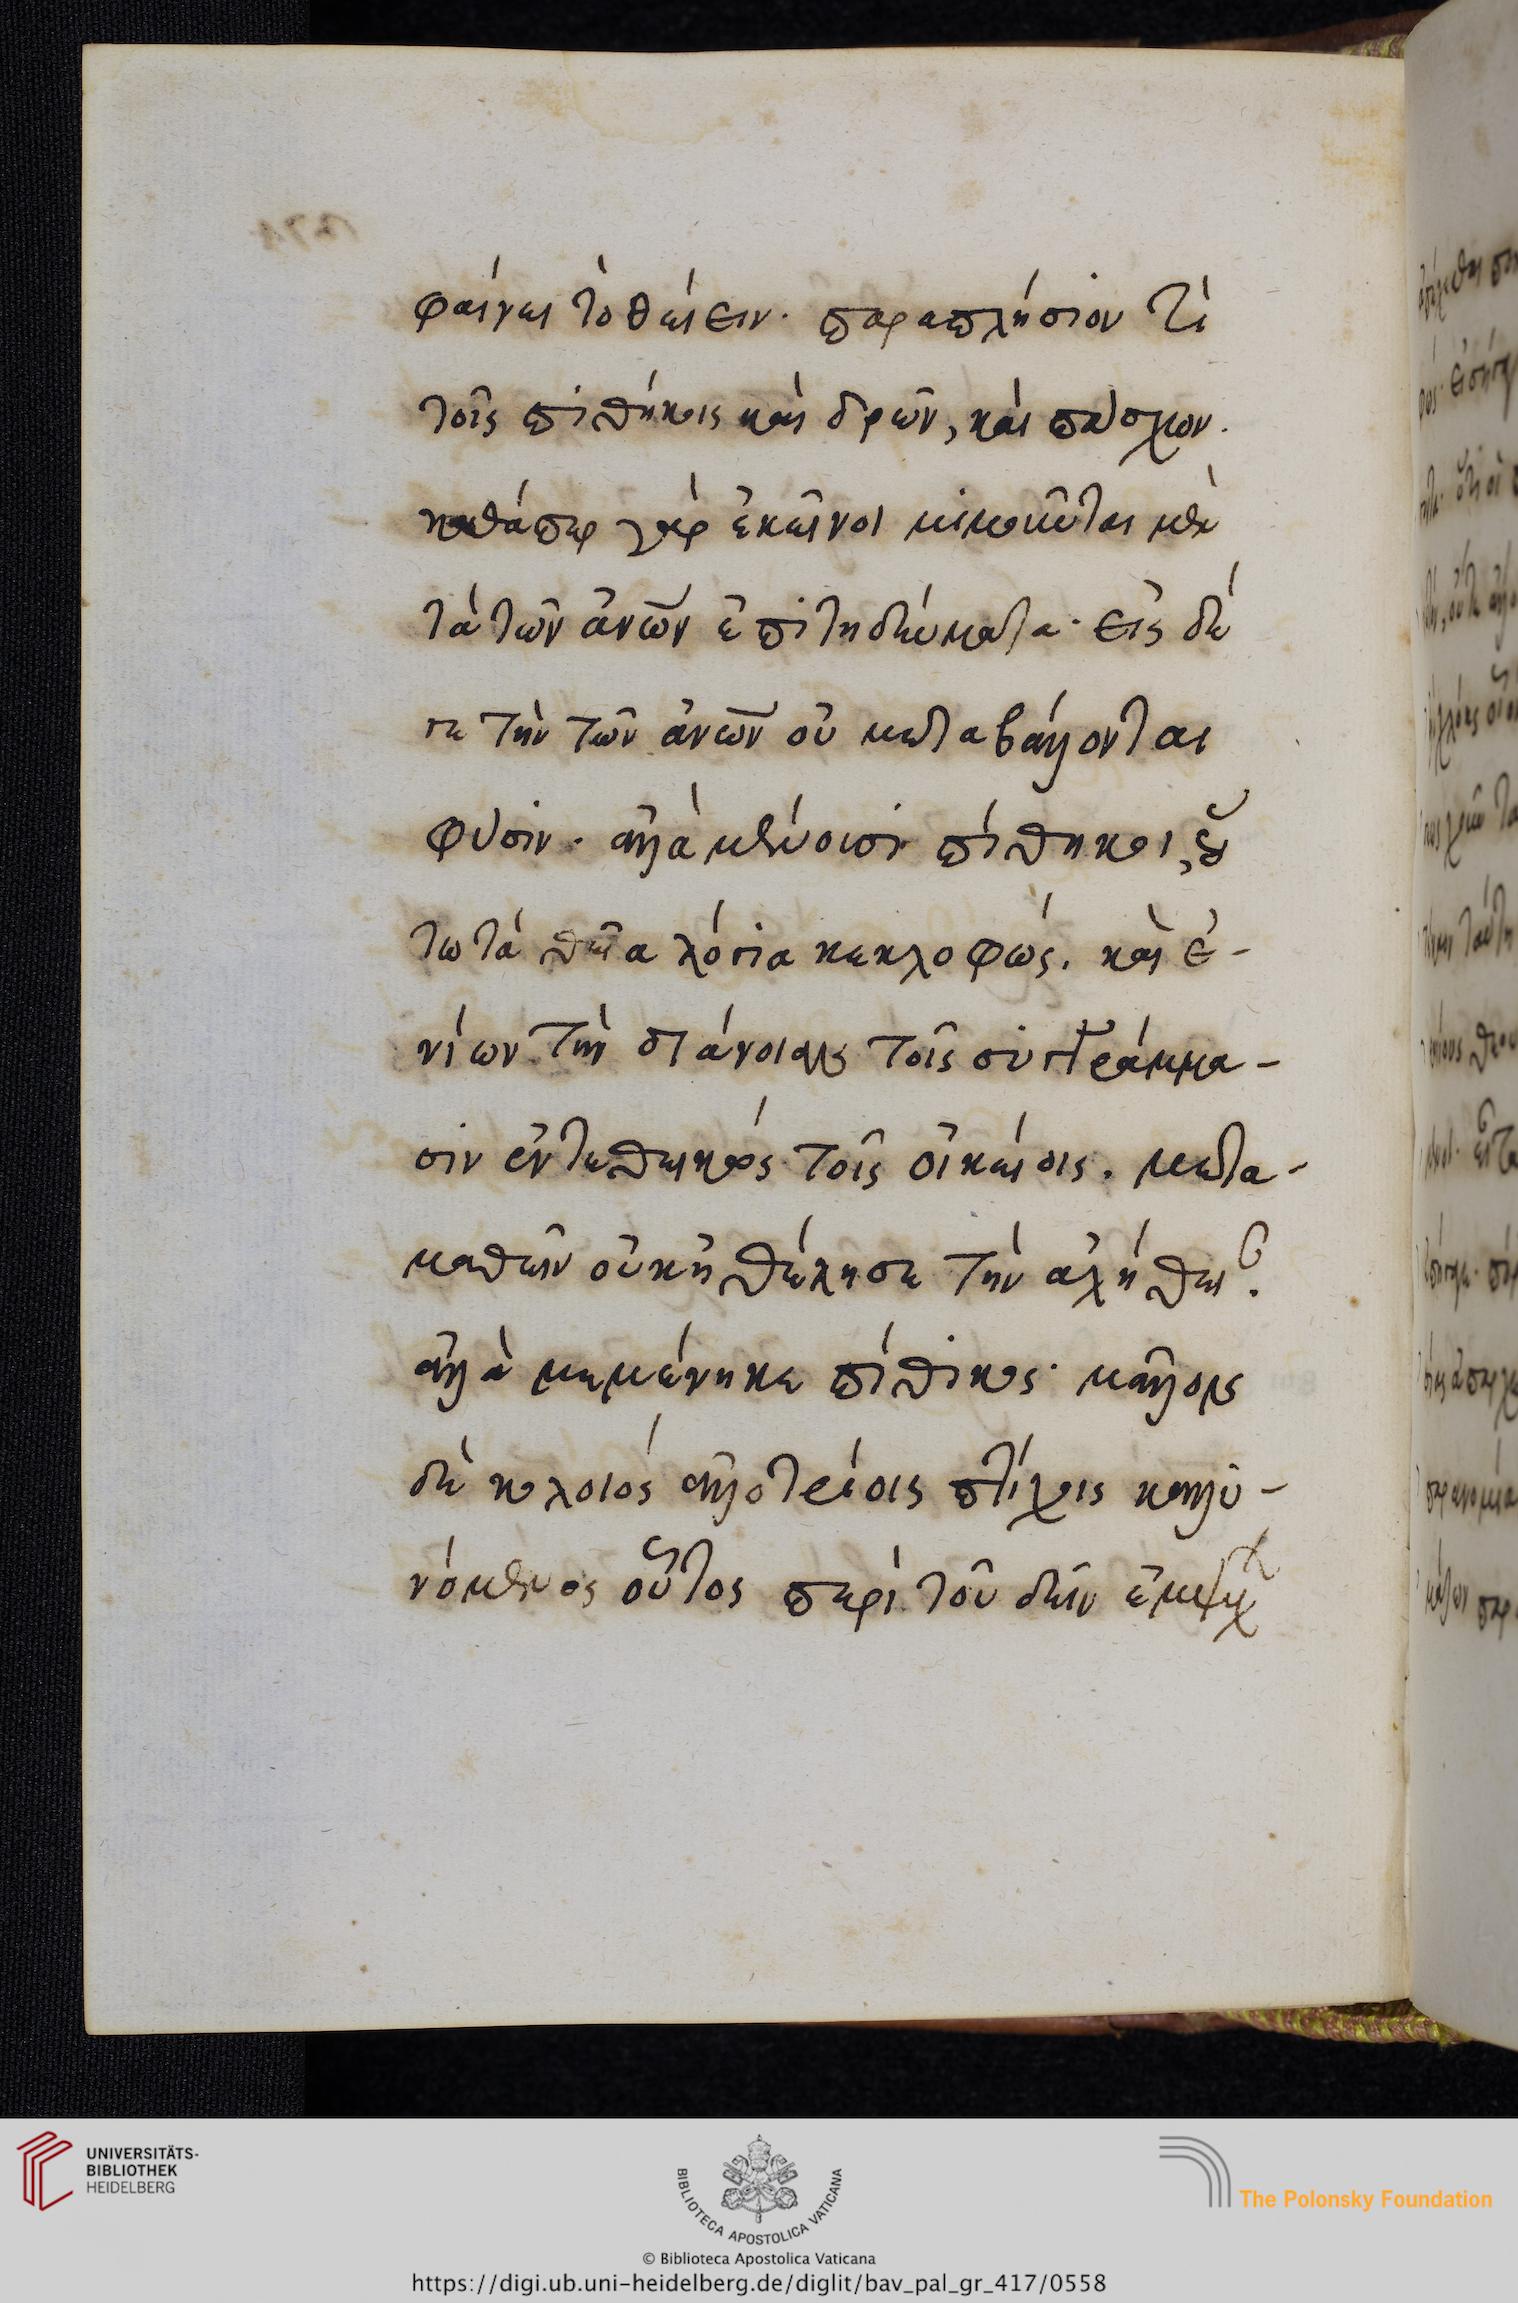 φαίνει τὸ θύειν· παραπλήσιόν τι
τοῖς πιθήκοις καὶ δρῶν, καὶ πάσχων.
καθάπερ γὰρ ἐκεῖνοι μιμοῦνται μὲν
τὰ τῶν ἀνων ἐπιτηδεύματα· εἰς δέ
γε τὴν τῶν ἀνων οὐ μεταβάλλονται
φύσιν· ἀλλὰ μένουσι πίθηκοι, οὕ
τω τὰ θεῖα λόγια κεκλοφώς. καὶ ἐ-
νίων τὴν διάνοιαν τοῖς συγγράμμα-
σιν ἐντεθεικὼς τοῖς οἰκείοις. μετα-
μαθεῖν οὐκ ἠθέλησε τὴν ἀλήθει.
ἀλλὰ μεμένηκε πίθικος· μᾶλλον
δὲ κολοιὸς ἀλλοτρίοις πτίλοις καλλυ-
νόμενος οὗτος περὶ τοῦ δεῖν ἐμψυχ
UNIVERSITÄTS-
BIBLIOTHEK
HEIDELBERG
BIBLIOTECA APOSTOLICA VATICANA
The Polonsky Foundation
© Biblioteca Apostolica Vaticana
https://digi.ub.uni-heidelberg.de/diglit/bav_pal_gr_417/0558